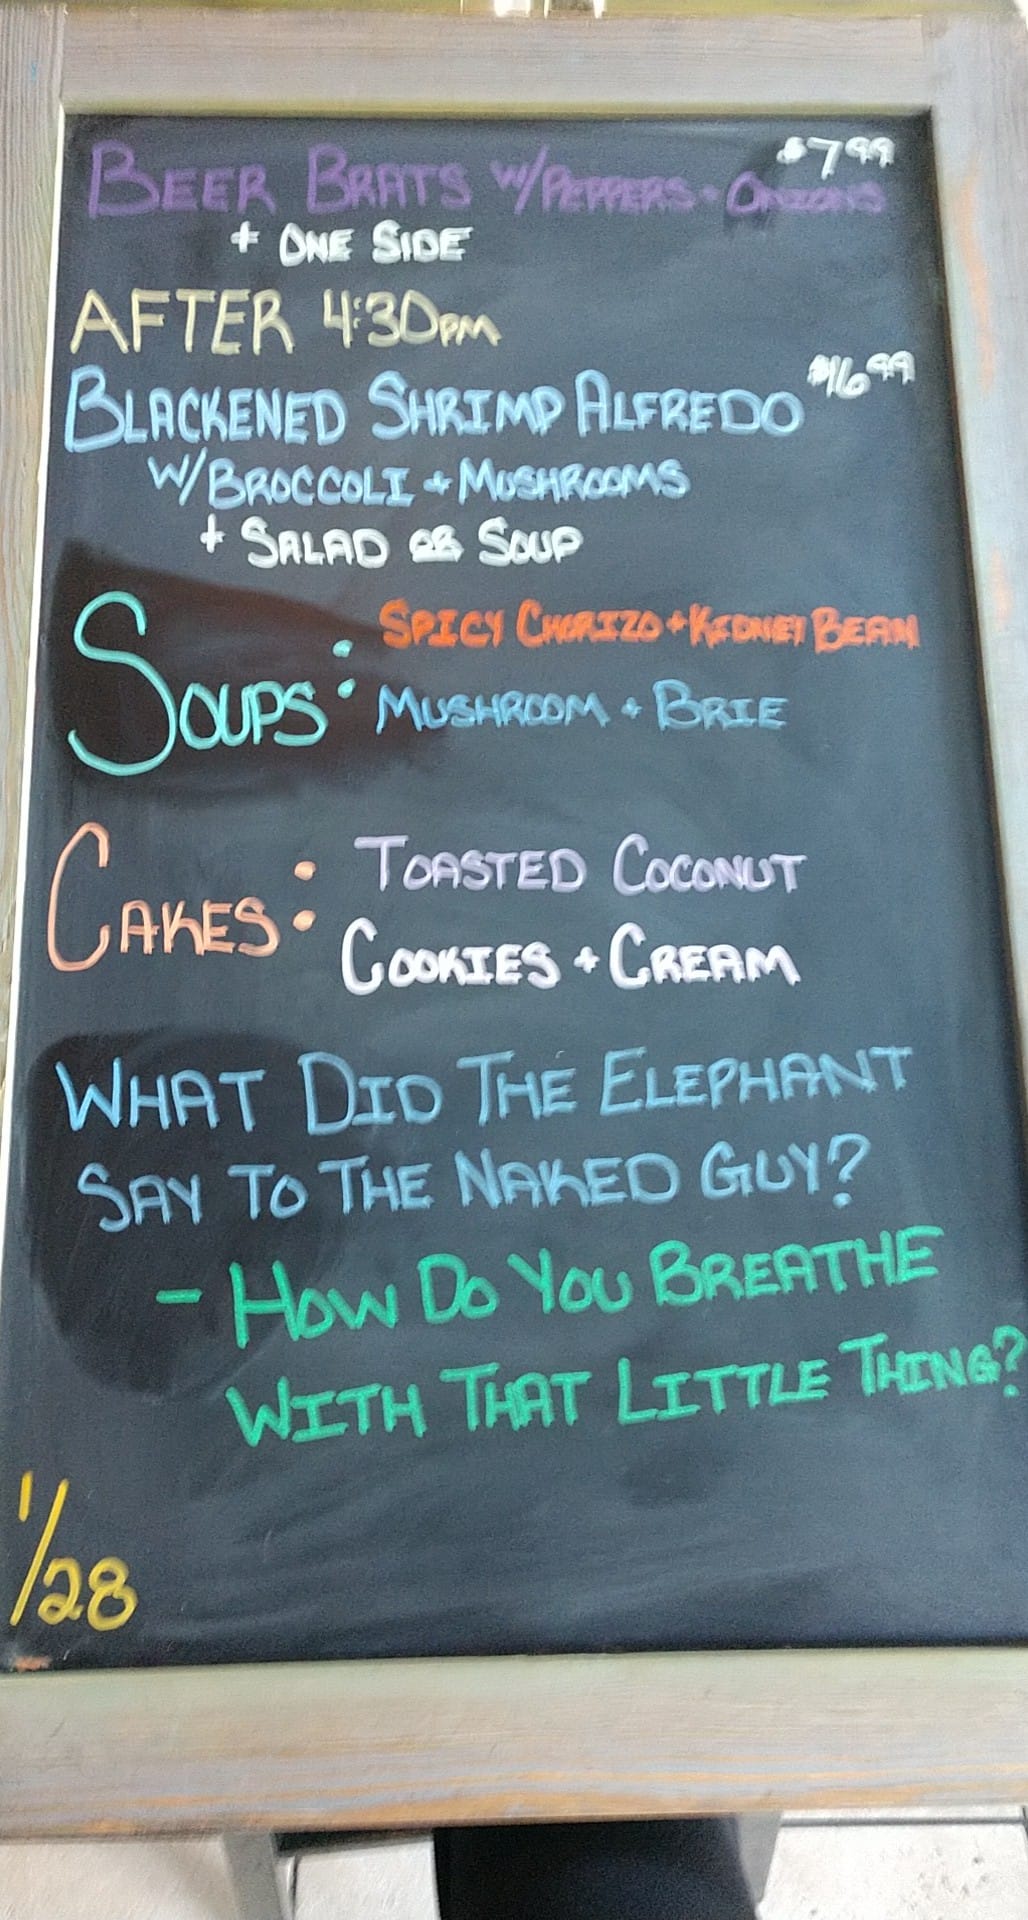 BEER BRATS W/PEPPERS + ONIONS $7.99
+ ONE SIDE
AFTER 4:30PM
BLACKENED SHRIMP ALFREDO $16.99
W/BROCCOLI + MUSHROOMS
+ SALAD OR SOUP
SOUPS: SPICY CHORIZO + KIDNEY BEAN
MUSHROOM + BRIE
CAKES: TOASTED COCONUT
COOKIES + CREAM
WHAT DID THE ELEPHANT
SAY TO THE NAKED GUY?
- HOW DO YOU BREATHE
WITH THAT LITTLE THING?
1/28